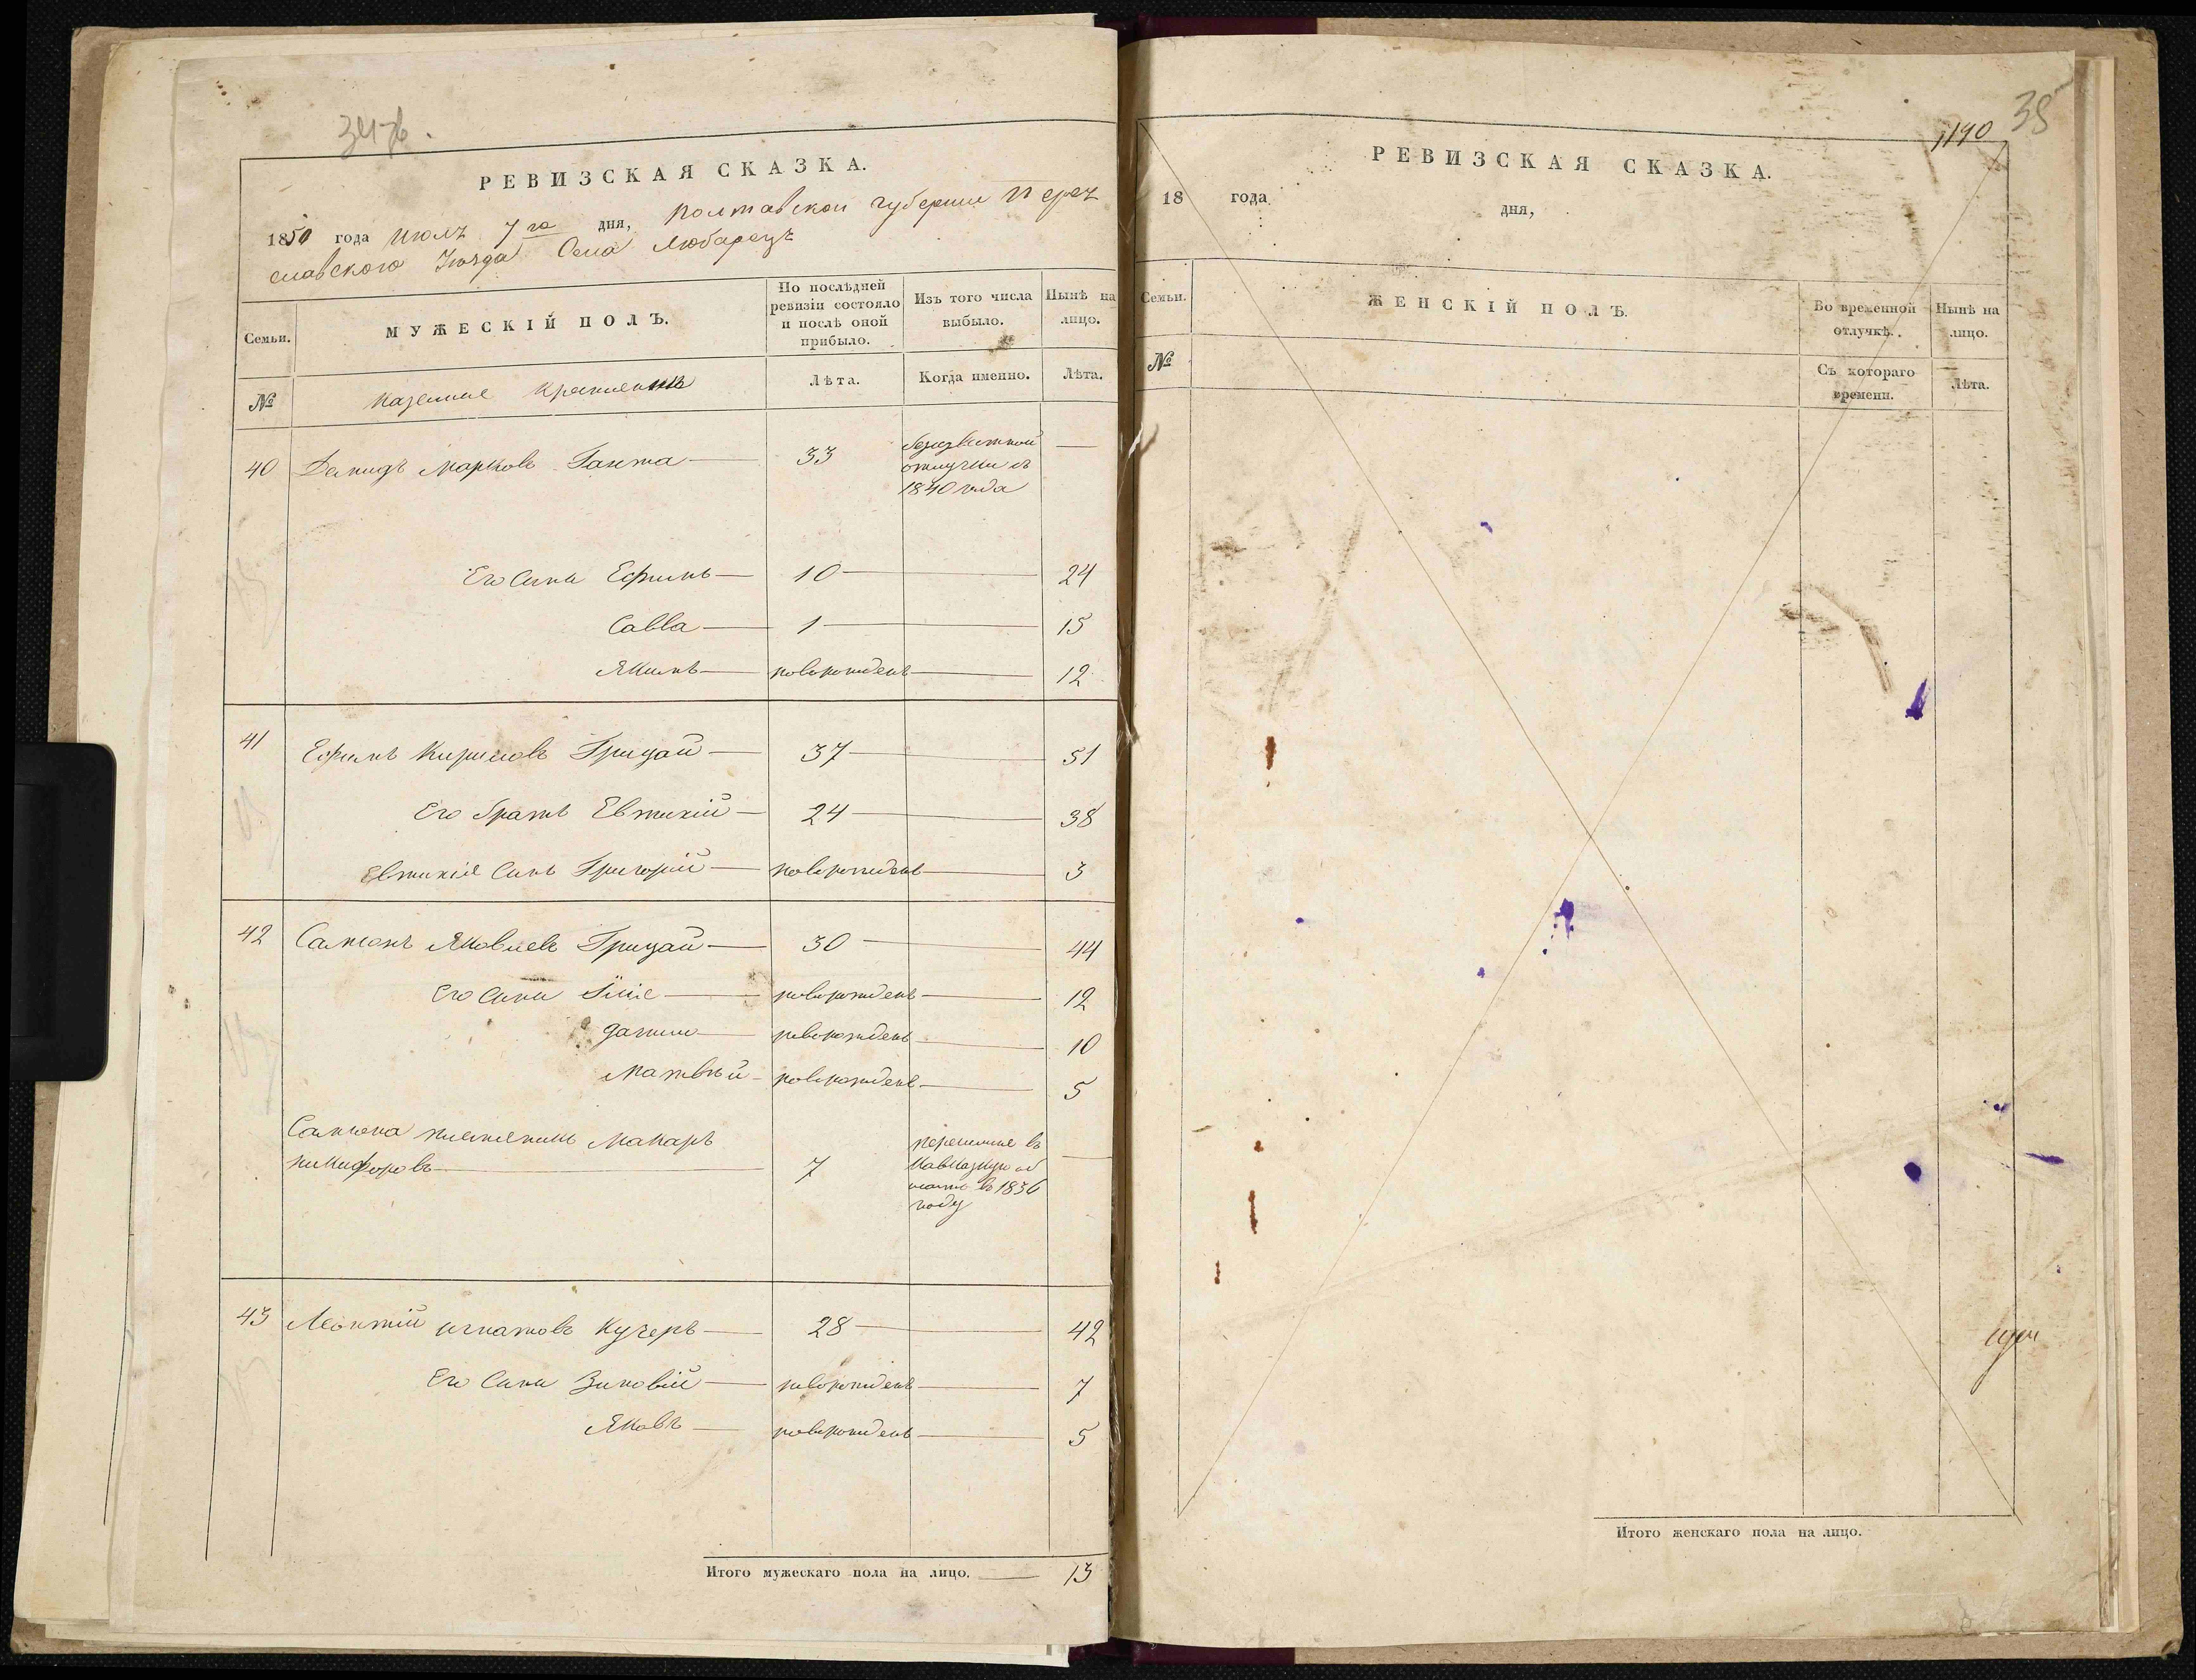 РЕВИЗСКАЯ СКАЗКА.
1850 года Июля 7го дня, Полтавской губернии Перея
славского Уезда Села Любарецъ
Семьи.
МУЖЕСКІЙ ПОЛЪ.
По послѣдней ревизіи состояло и послѣ оной прибыло.
Изъ того числа выбыло.
Нынѣ на лицо.
№
Казенные Крестьяне
Лѣта.
Когда именно.
Лѣта.
40 Демидъ Марковъ 33
отлучки съ
1840 года —
Его Сыны Ефимъ — 10 — 24
Савва — 1 — 15
Якимъ — новорожденъ — 12
41 Ефимъ Кириловъ Грицай — 37 — 51
Его братъ Евтихій — 24 — 38
Евтихія Сынъ Григорій — новорожденъ — 3
42 Самсонъ Яковлевъ Грицай — 30 — 44
Его Сыны Илія — новорожденъ — 12
новорожденъ — 10
Матвѣй — новорожденъ — 5
Самсона племянникъ Макаръ
Никифоровъ — 7 —
перешелъ въ
Кавказкую об
ласть въ 1836
году
43 Леонтій Игнатовъ Кучеръ — 28 — 42
Его Сыны Зиновій — новорожденъ — 7
Яковъ — новорожденъ — 5
Итого мужескаго пола на лицо. — 13
38
1190
РЕВИЗСКАЯ СКАЗКА.
18 года дня,
Семьи.
ЖЕНСКІЙ ПОЛЪ.
Во временной отлучкѣ.
Нынѣ на лицо.
№
Съ котораго времени.
Лѣта.
Итого женскаго пола на лицо.